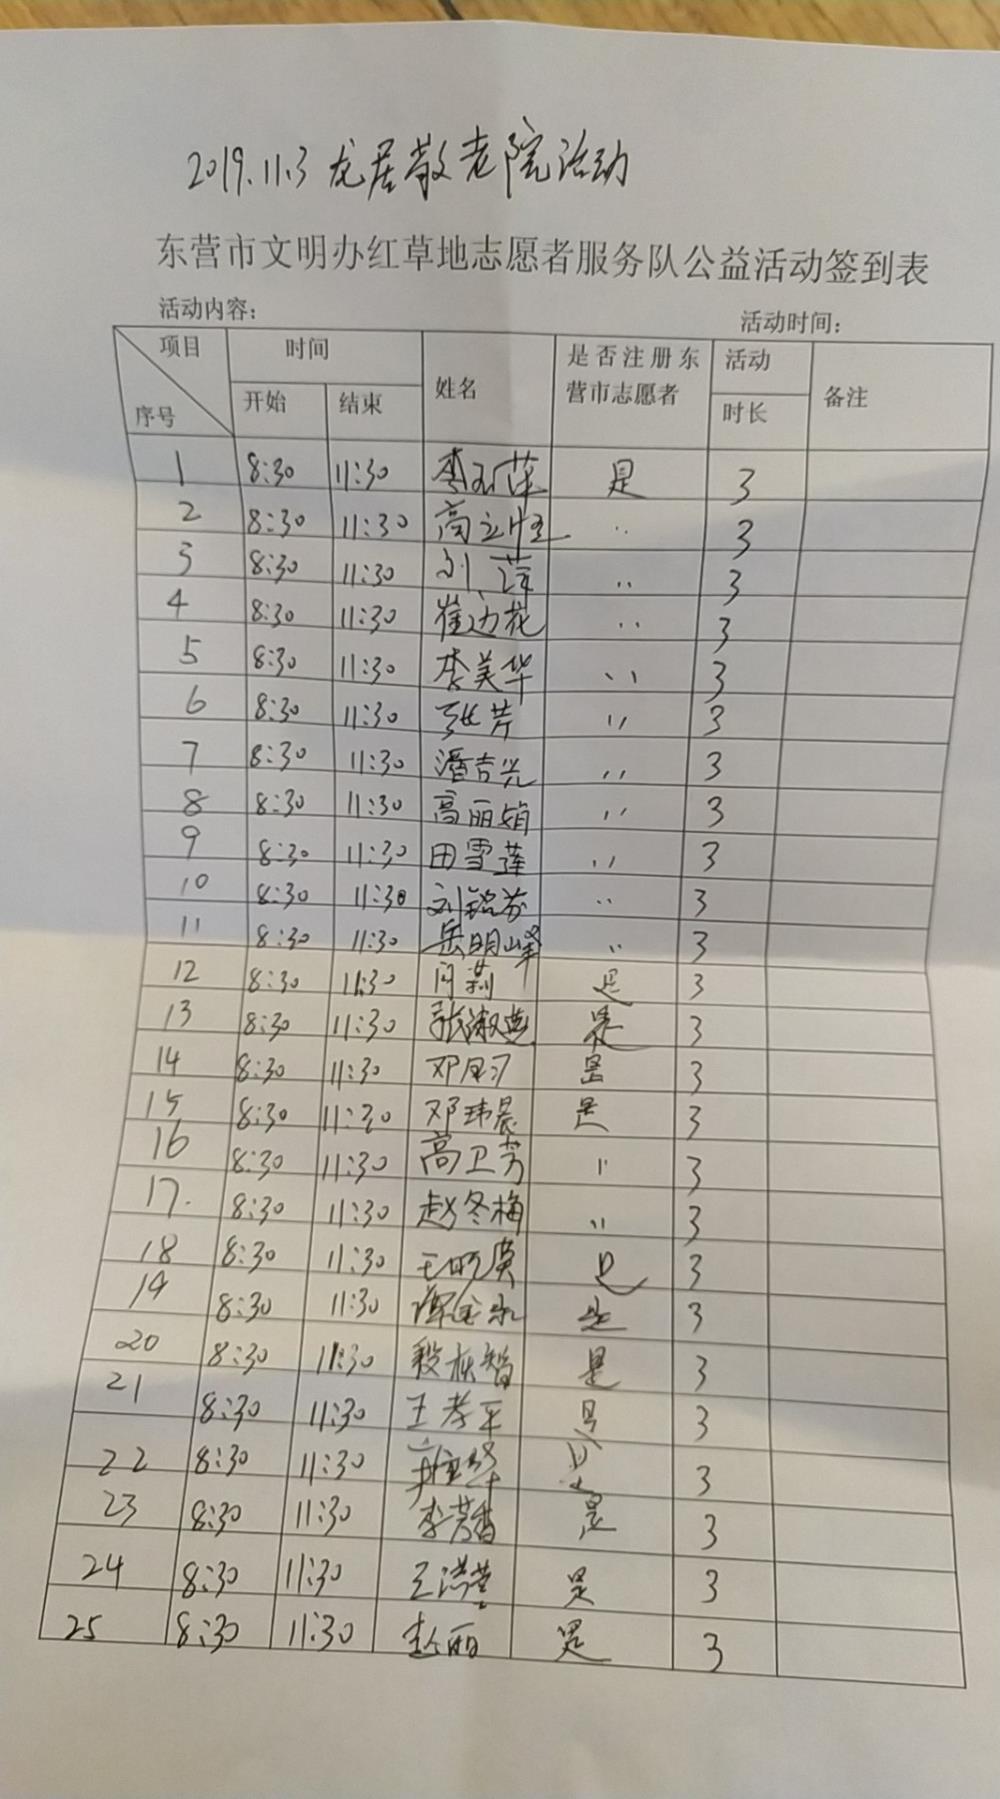 2019.11.3 龙居敬老院活动
东营市文明办红草地志愿者服务队公益活动签到表
活动内容： 活动时间：
项目 序号 时间 开始 结束 姓名 是否注册东营市志愿者 活动时长 备注
1 8:30 11:30 李 萍 是 3
2 8:30 11:30 高立恒 〃 3
3 8:30 11:30 刘萍 〃 3
4 8:30 11:30 崔边花 〃 3
5 8:30 11:30 李美华 〃 3
6 8:30 11:30 张芹 〃 3
7 8:30 11:30 潘吉光 〃 3
8 8:30 11:30 高丽娟 〃 3
9 8:30 11:30 田雪莲 〃 3
10 8:30 11:30 刘铭芬 〃 3
11 8:30 11:30 岳明峰 〃 3
12 8:30 11:30 闫莉 是 3
13 8:30 11:30 张淑燕 是 3
14 8:30 11:30 邓 是 3
15 8:30 11:30 邓玮晨 是 3
16 8:30 11:30 高卫芳 〃 3
17. 8:30 11:30 赵冬梅 〃 3
18 8:30 11:30 王明英 是 3
19 8:30 11:30 是 3
20 8:30 11:30 是 3
21 8:30 11:30 王孝平 是 3
22 8:30 11:30 是 3
23 8:30 11:30 李芳香 是 3
24 8:30 11:30 王洪 是 3
25 8:30 11:30 赵丽 是 3